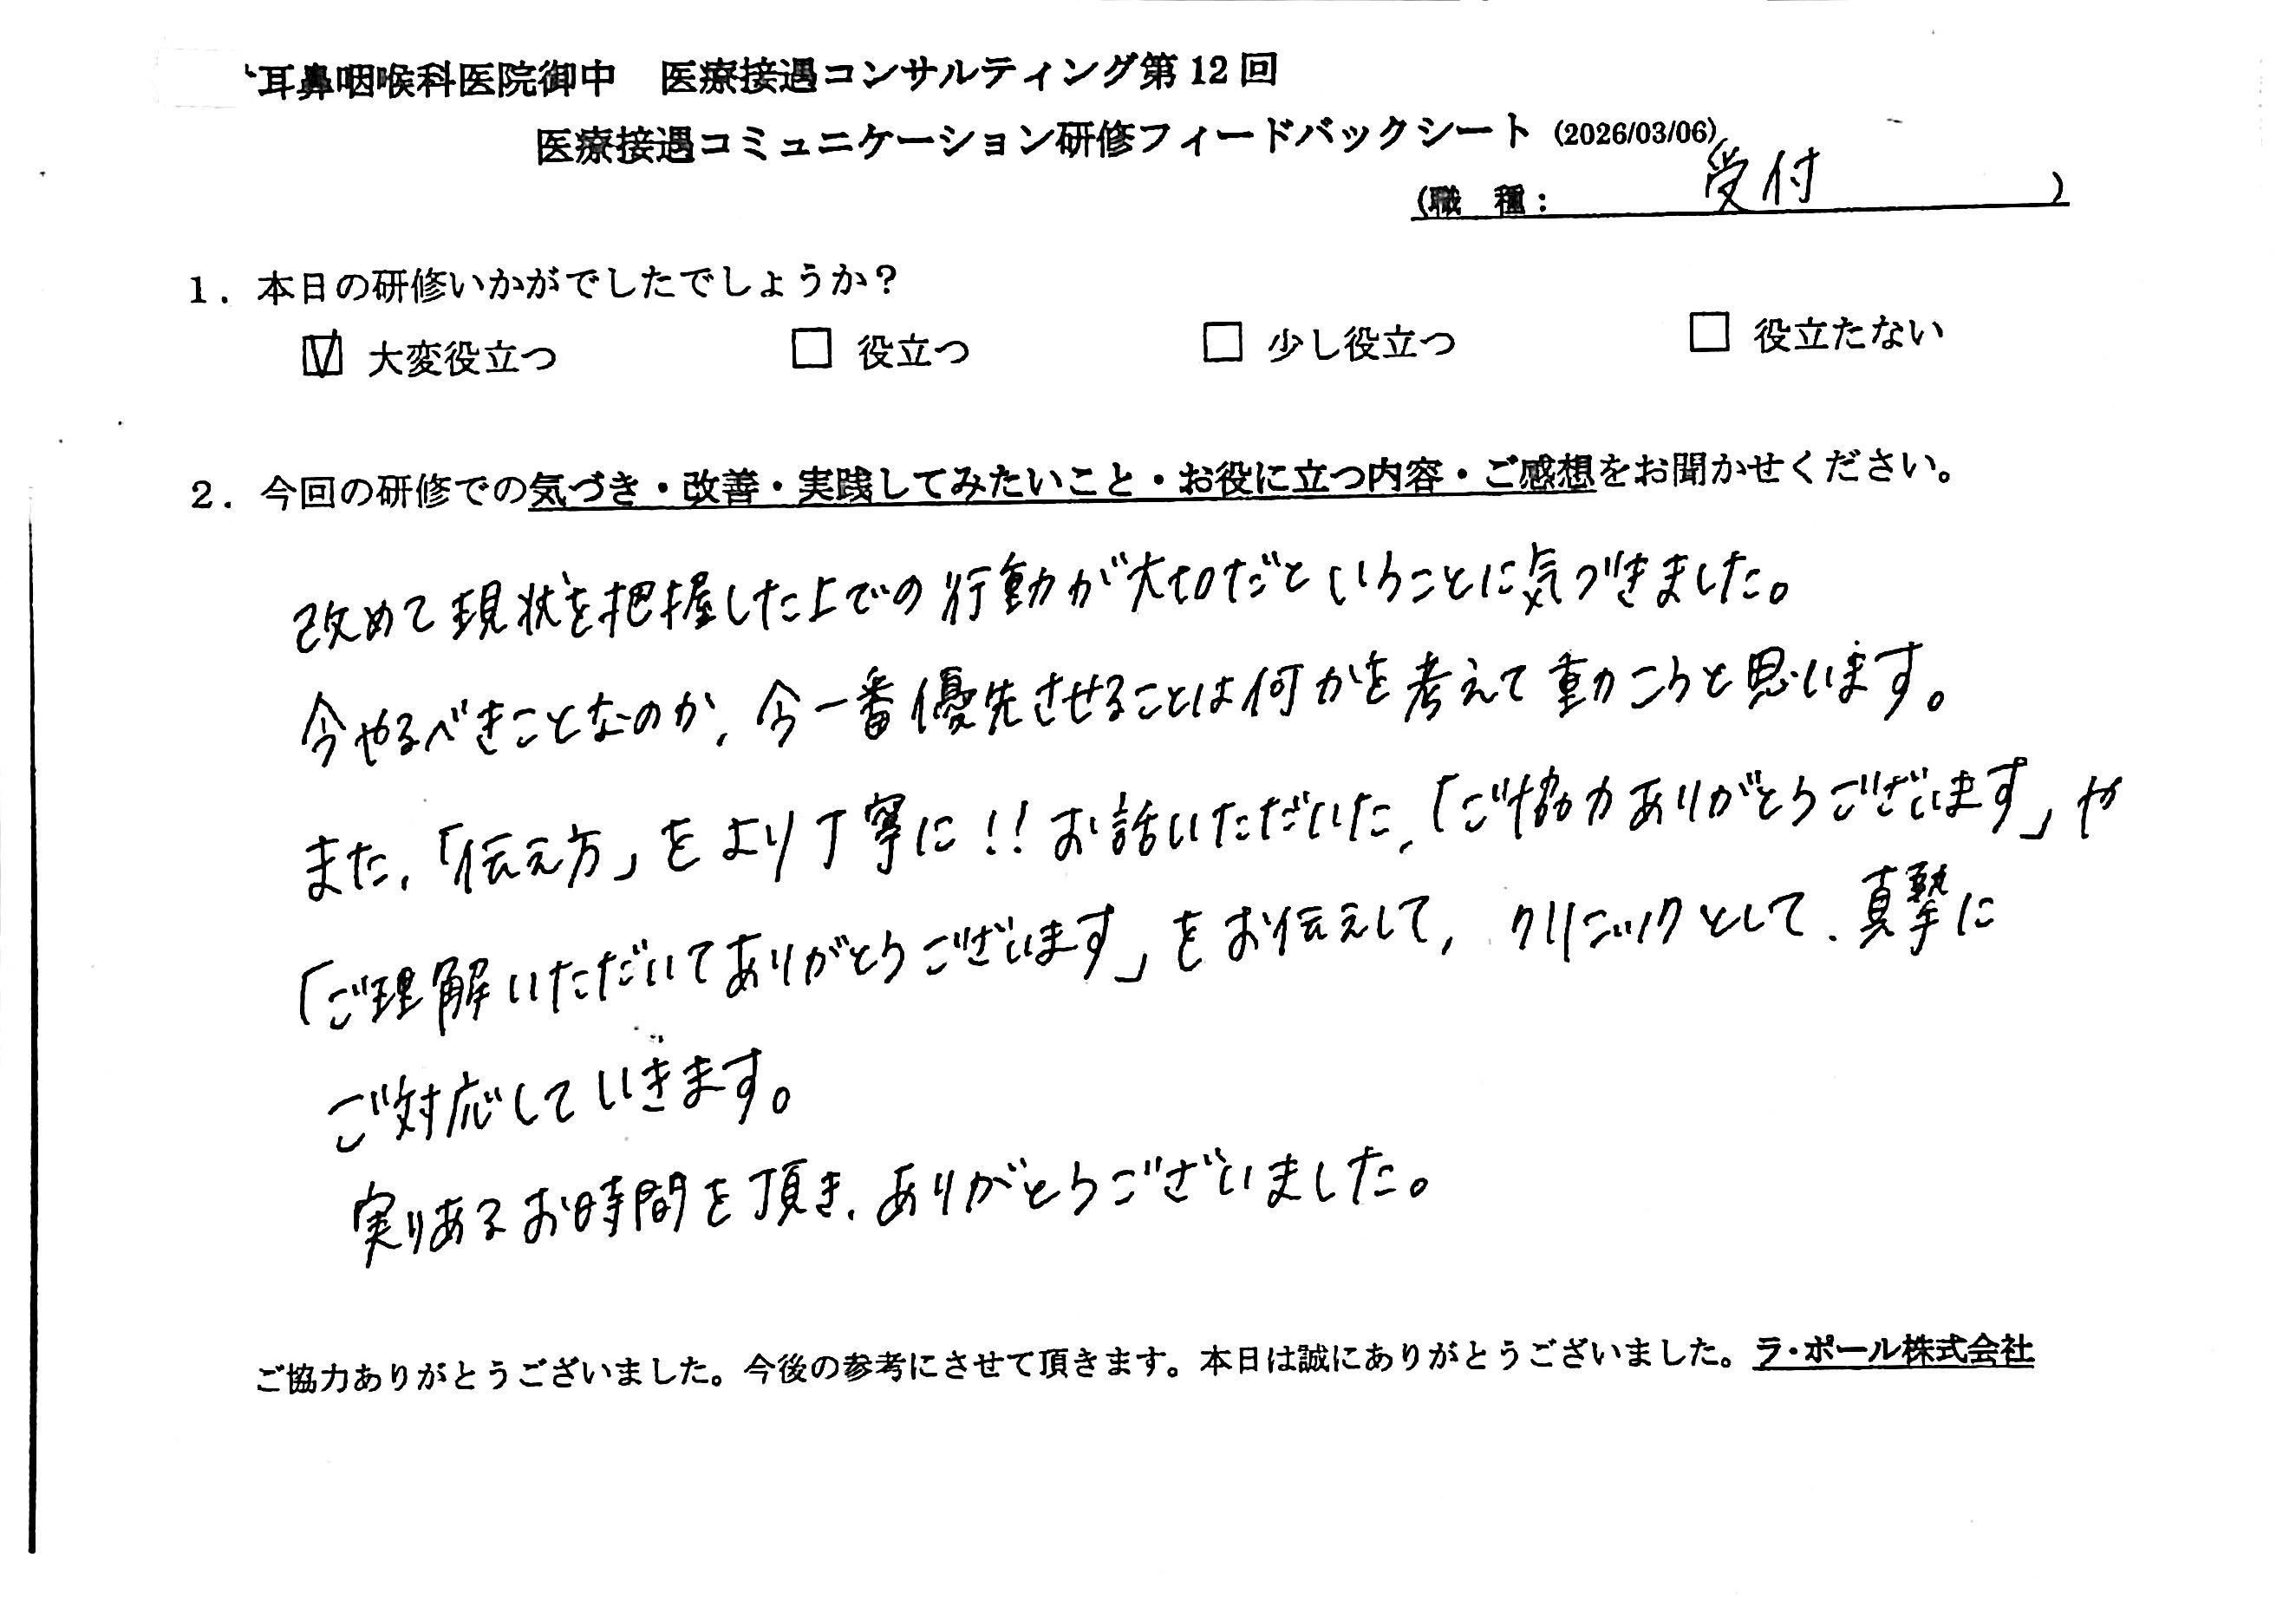 耳鼻咽喉科医院御中 医療接遇コンサルティング第12回
医療接遇コミュニケーション研修フィードバックシート (2026/03/06)
(職 種: 受付 )
1. 本日の研修いかがでしたでしょうか?
☑ 大変役立つ □ 役立つ □ 少し役立つ □ 役立たない
2. 今回の研修での気づき・改善・実践してみたいこと・お役に立つ内容・ご感想をお聞かせください。
改めて現状を把握した上での行動が大切だということに気づきました。
今やるべきことなのか、今一番優先させることは何かを考えて動こうと思います。
また、「伝え方」をより丁寧に!! お話いただいた、「ご協力ありがとうございます」や
「ご理解いただいてありがとうございます」をお伝えして、クリニックとして、真摯に
ご対応していきます。
実りあるお時間を頂き、ありがとうございました。
ご協力ありがとうございました。今後の参考にさせて頂きます。本日は誠にありがとうございました。ラ・ポール株式会社